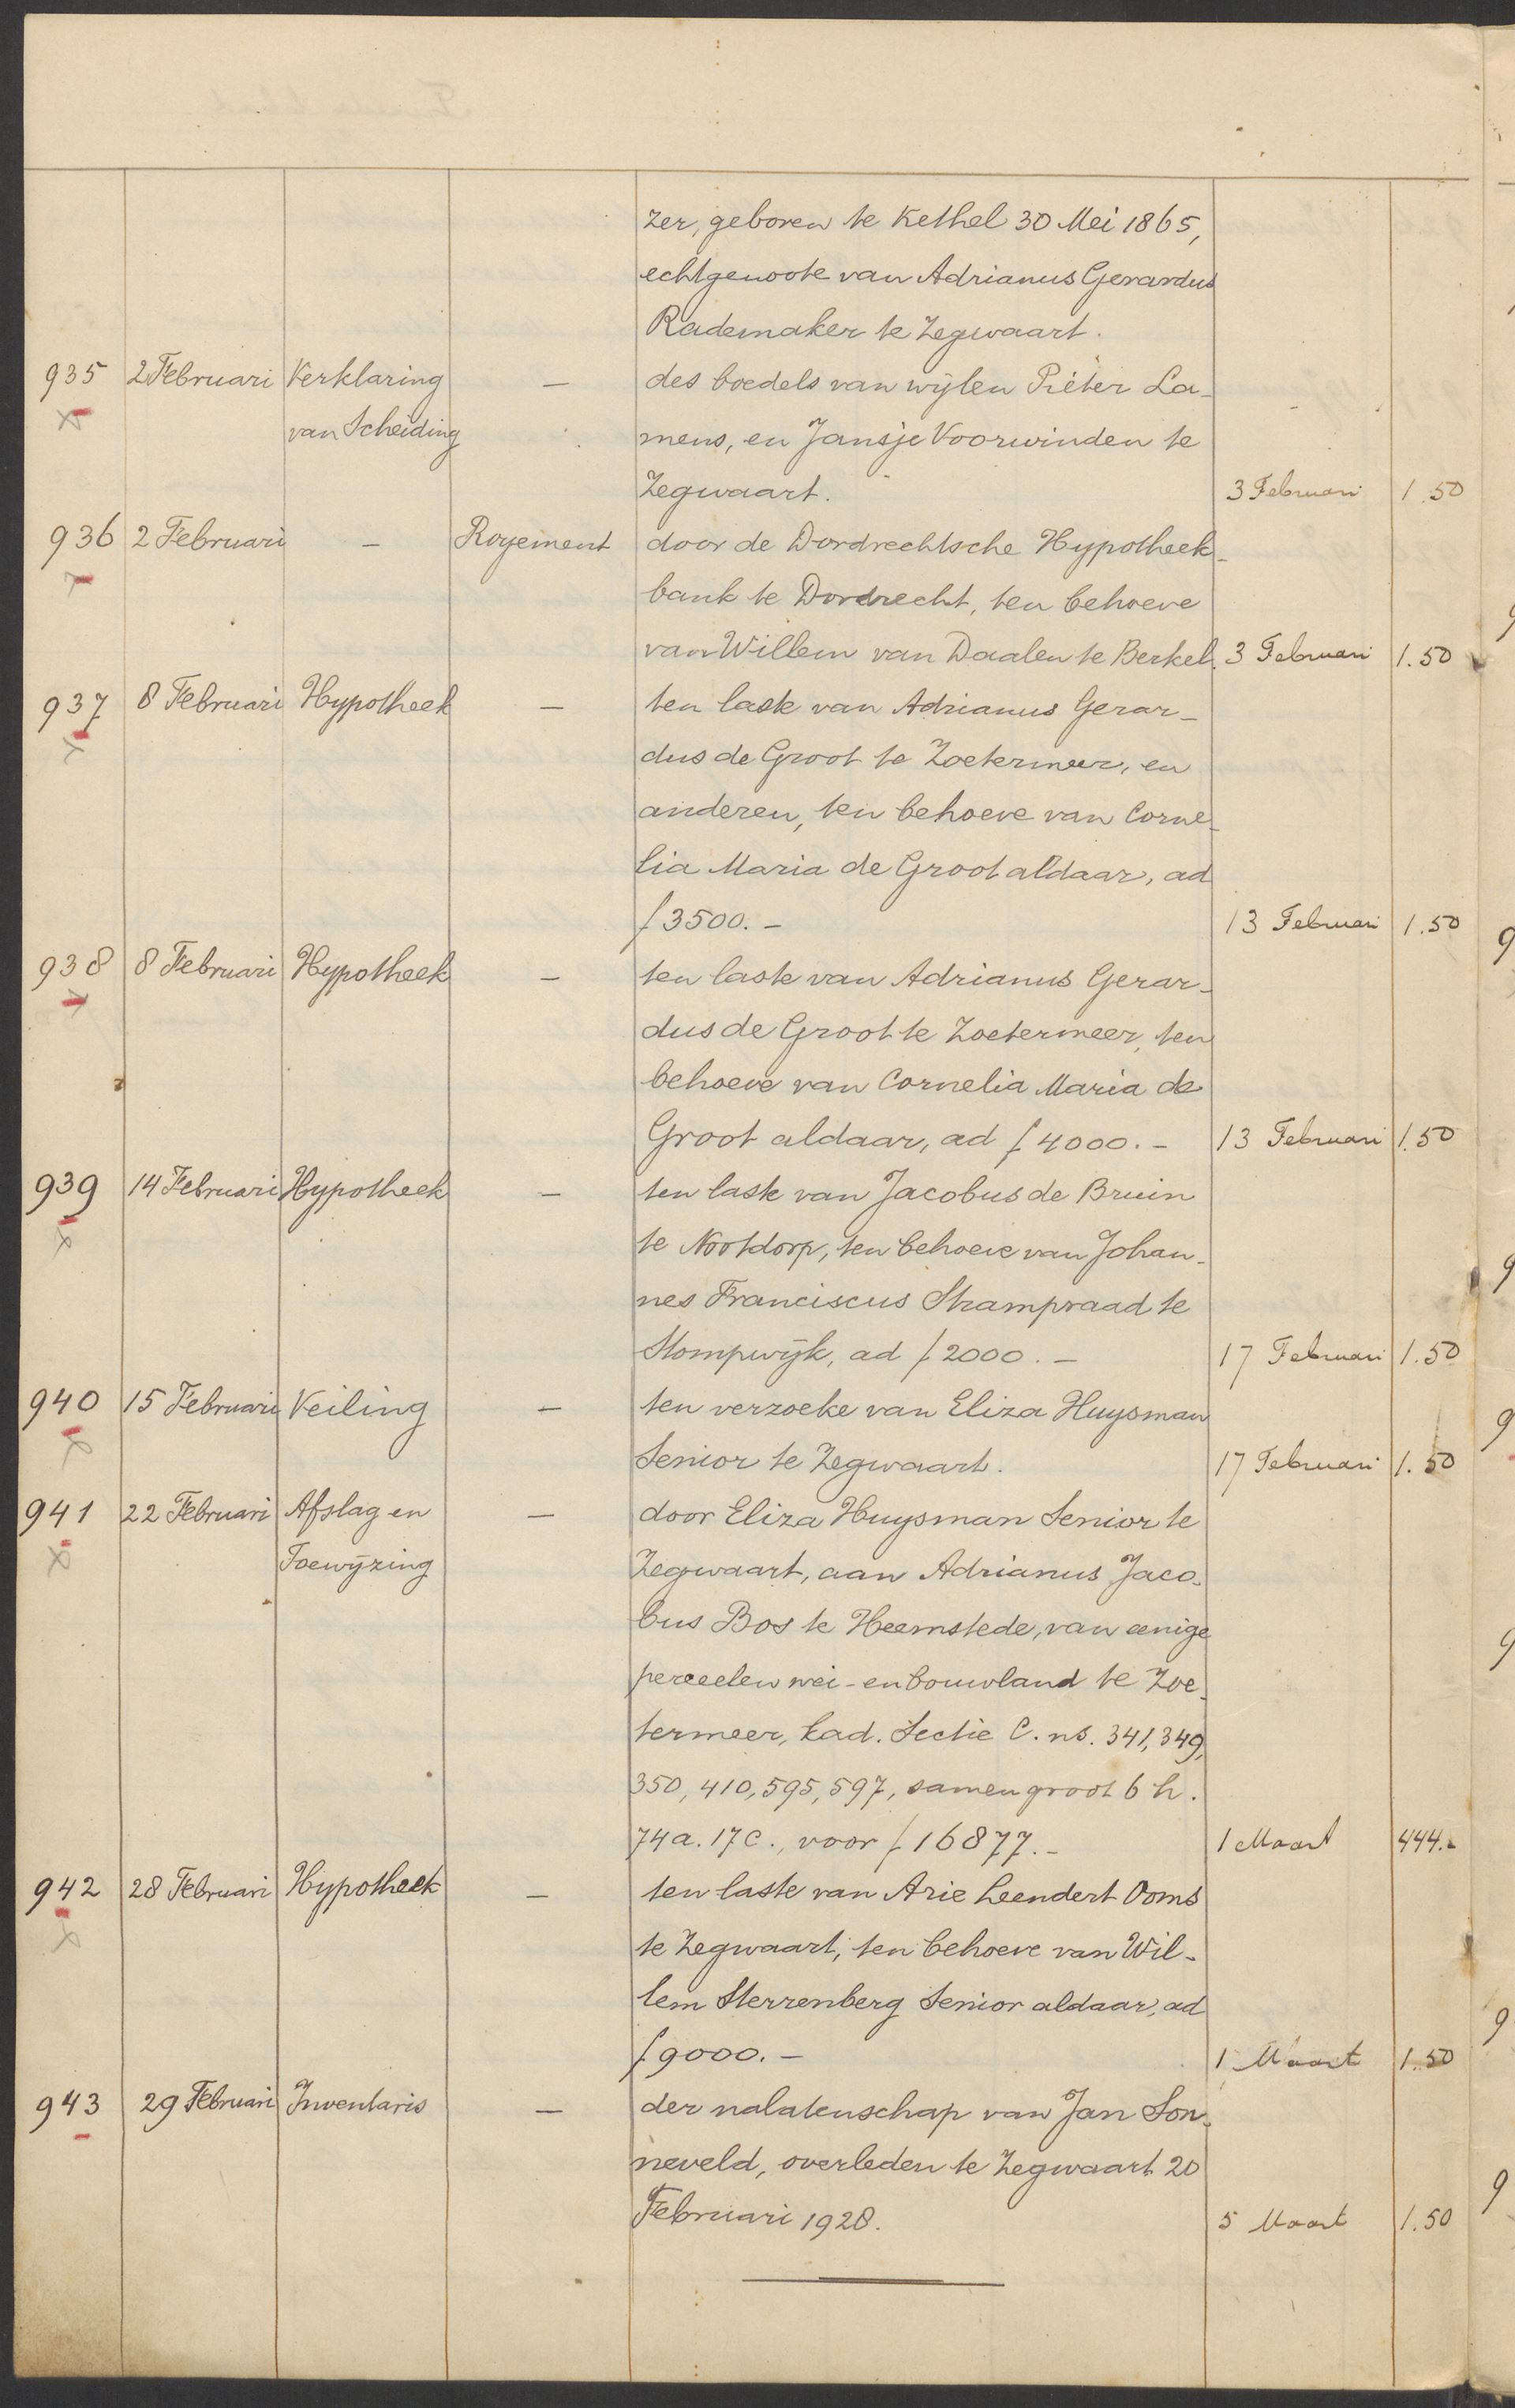 zer, geboren te Kethel 30 Mei 1865,
echtgenoote van Adrianus Gerardus
Rademaker te Zegwaart.
935 2 Februari Verklaring — des boedels van wijlen Pieter La-
van Scheiding mens, en Jansje Voorwinden te
Zegwaart. 3 Februari 1.50
936 2 Februari — Royement door de Dordrechtsche Hypotheek-
bank te Dordrecht, ten behoeve
van Willem van Daalen te Berkel. 3 Februari 1.50
937 8 Februari Hypotheek — ten laste van Adrianus Gerar-
dus de Groot te Zoetermeer, en
anderen, ten behoeve van Corne-
lia Maria de Groot aldaar, ad
ƒ 3500.- 13 Februari 1.50
938 8 Februari Hypotheek — ten laste van Adrianus Gerar-
dus de Groot te Zoetermeer, ten
behoeve van Cornelia Maria de
Groot aldaar, ad ƒ 4000.- 13 Februari 1.50
939 14 Februari Hypotheek — ten laste van Jacobus de Bruin
te Nootdorp, ten behoeve van Johan-
nes Franciscus Strampraad te
Stompwijk, ad ƒ 2000.- 17 Februari 1.50
940 15 Februari Veiling — ten verzoeke van Eliza Huysman
Senior te Zegwaart. 17 Februari 1.50
941 22 Februari Afslag en — door Eliza Huysman Senior te
Toewijzing Zegwaart, aan Adrianus Jaco-
bus Bos te Heemstede, van eenige
perceelen wei- en bouwland te Zoe-
termeer, kad. Sectie C. ns. 341, 349,
350, 410, 595, 597, samen groot 6 h.
74 a. 17 c., voor ƒ 16877.- 1 Maart 444.-
942 28 Februari Hypotheek — ten laste van Arie Leendert Ooms
te Zegwaart, ten behoeve van Wil-
lem Sterrenberg Senior aldaar, ad
ƒ 9000.- 1 Maart 1.50
943 29 Februari Inventaris — der nalatenschap van Jan Son-
neveld, overleden te Zegwaart 20
Februari 1928. 5 Maart 1.50